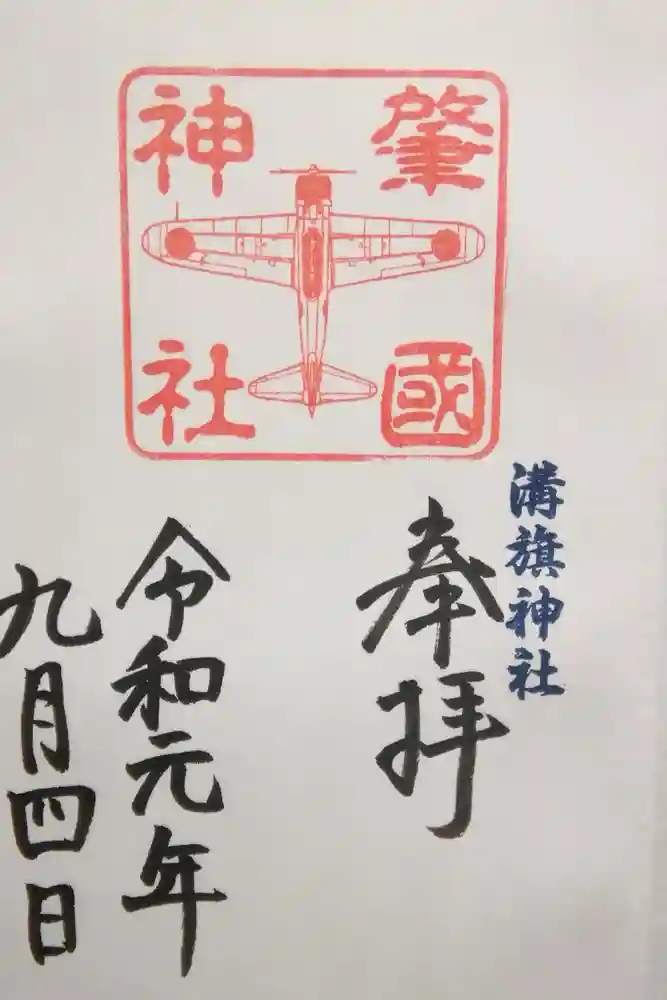 肇國
神社
溝旗神社
奉拝
令和元年
九月四日